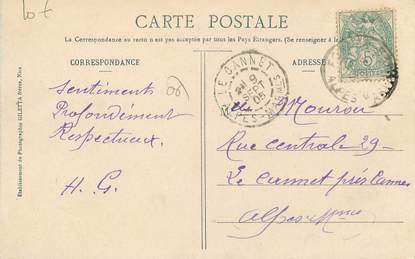 CARTE POSTALE
La Correspondance au recto n'est pas acceptée par tous les Pays Étrangers. (Se renseigner à
CORRESPONDANCE
ADRESSE
Sentiments
Profondément
Respectueux.
H. G.
LE CANNET
9
SEPT
05
ALPES-MARMES
5
POSTES
Mourou
Rue Centrale 29-
Le Cannet près Cannes
Alpes-Mmes
Etablissement de Photographie GILETTA frères, Nice